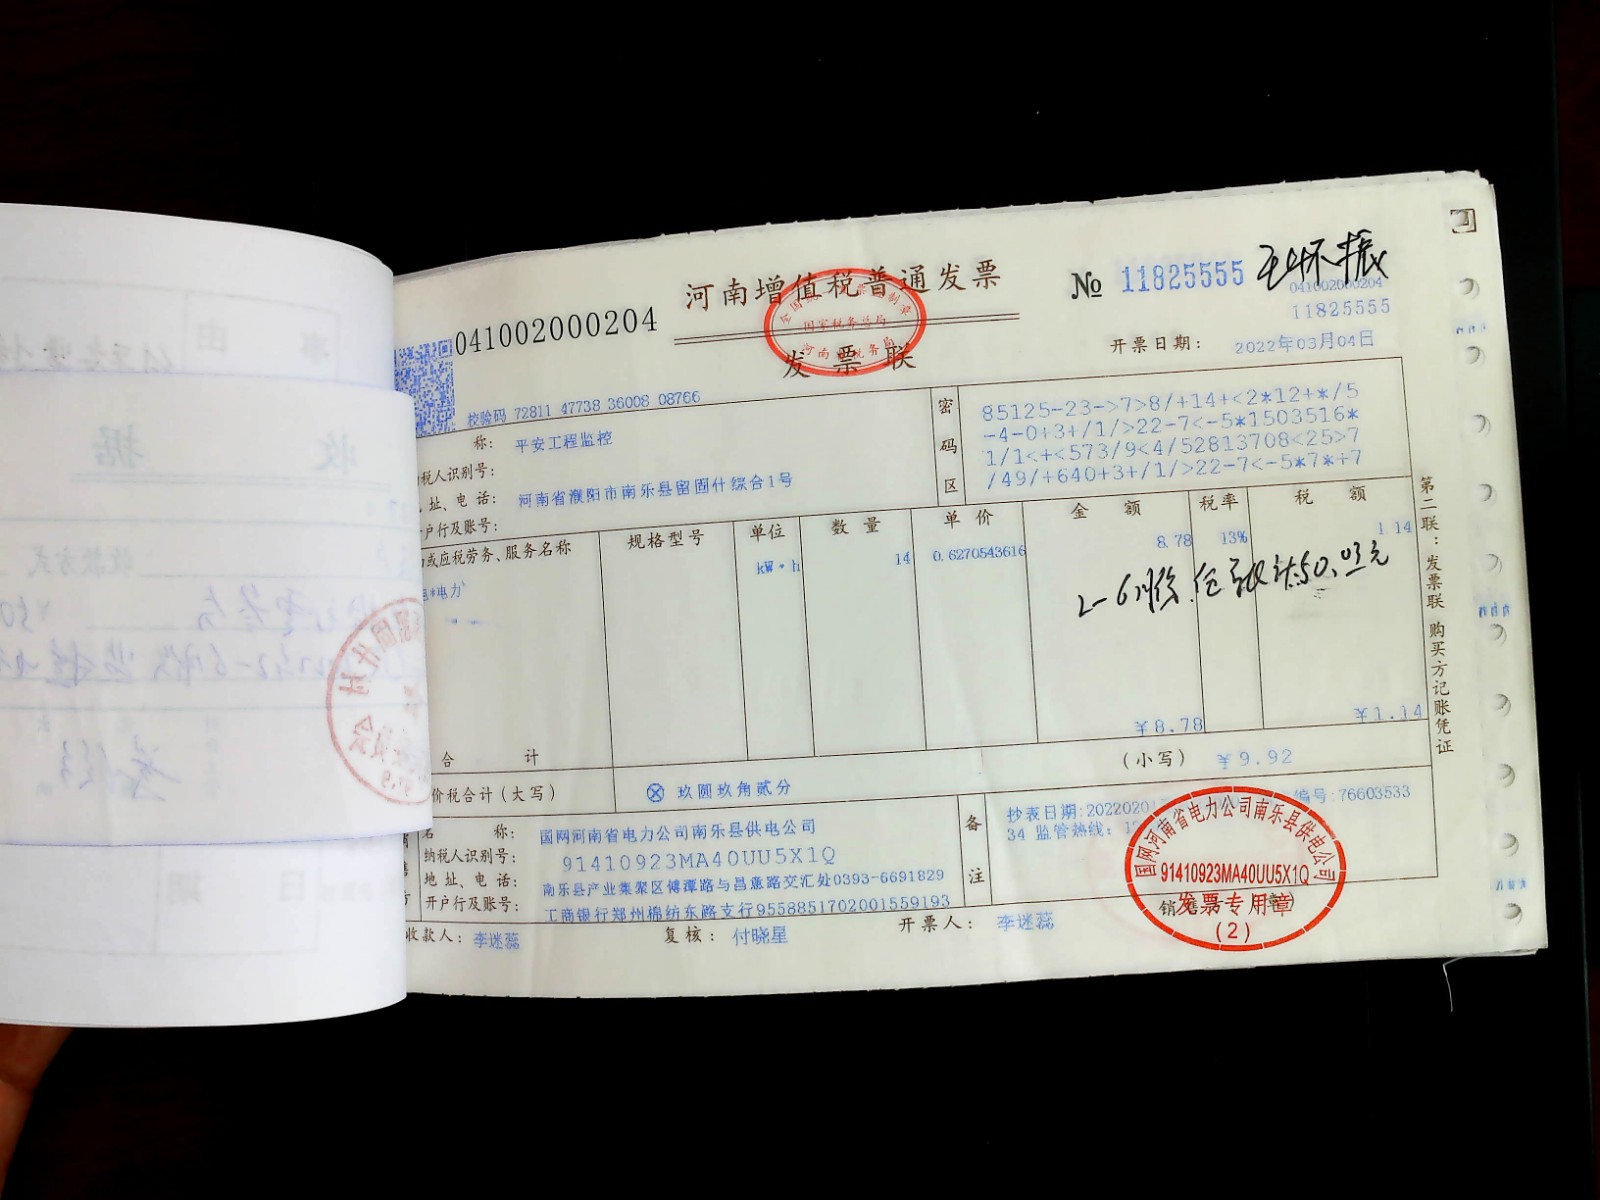 041002000204
河南增值税普通发票
发票联
国家税务总局
№ 11825555
041002000204
11825555
开票日期： 2022年03月04日
校验码 72811 47738 36008 08766
称： 平安工程监控
税人识别号：
址、电话： 河南省濮阳市南乐县留固什综合1号
户行及账号：
密码区
85125-23->7>8/+14+<2*12+*/5
-4-0+3+/1/>22-7<-5*1503516*
1/1<+<573/9<4/52813708<25>7
/49/+640+3+/1/>22-7<-5*7*+7
或应税劳务、服务名称 规格型号 单位 数量 单价 金额 税率 税额
*电力 kW·h 14 0.6270543616 8.78 13% 1.14
合计 ¥8.78 ¥1.14
价税合计（大写） ⊗ 玖圆玖角贰分 （小写） ¥9.92
名称： 国网河南省电力公司南乐县供电公司
纳税人识别号： 91410923MA40UU5X1Q
地址、电话： 南乐县产业集聚区傅潭路与昌意路交汇处0393-6691829
开户行及账号： 工商银行郑州棉纺东路支行9558851702001559193
备注
抄表日期:202202 编号:76603533
34 监管热线：
收款人： 李迷蕊 复核： 付晓星 开票人： 李迷蕊
国网河南省电力公司南乐县供电公司
91410923MA40UU5X1Q
发票专用章
(2)
第二联：发票联 购买方记账凭证
收据